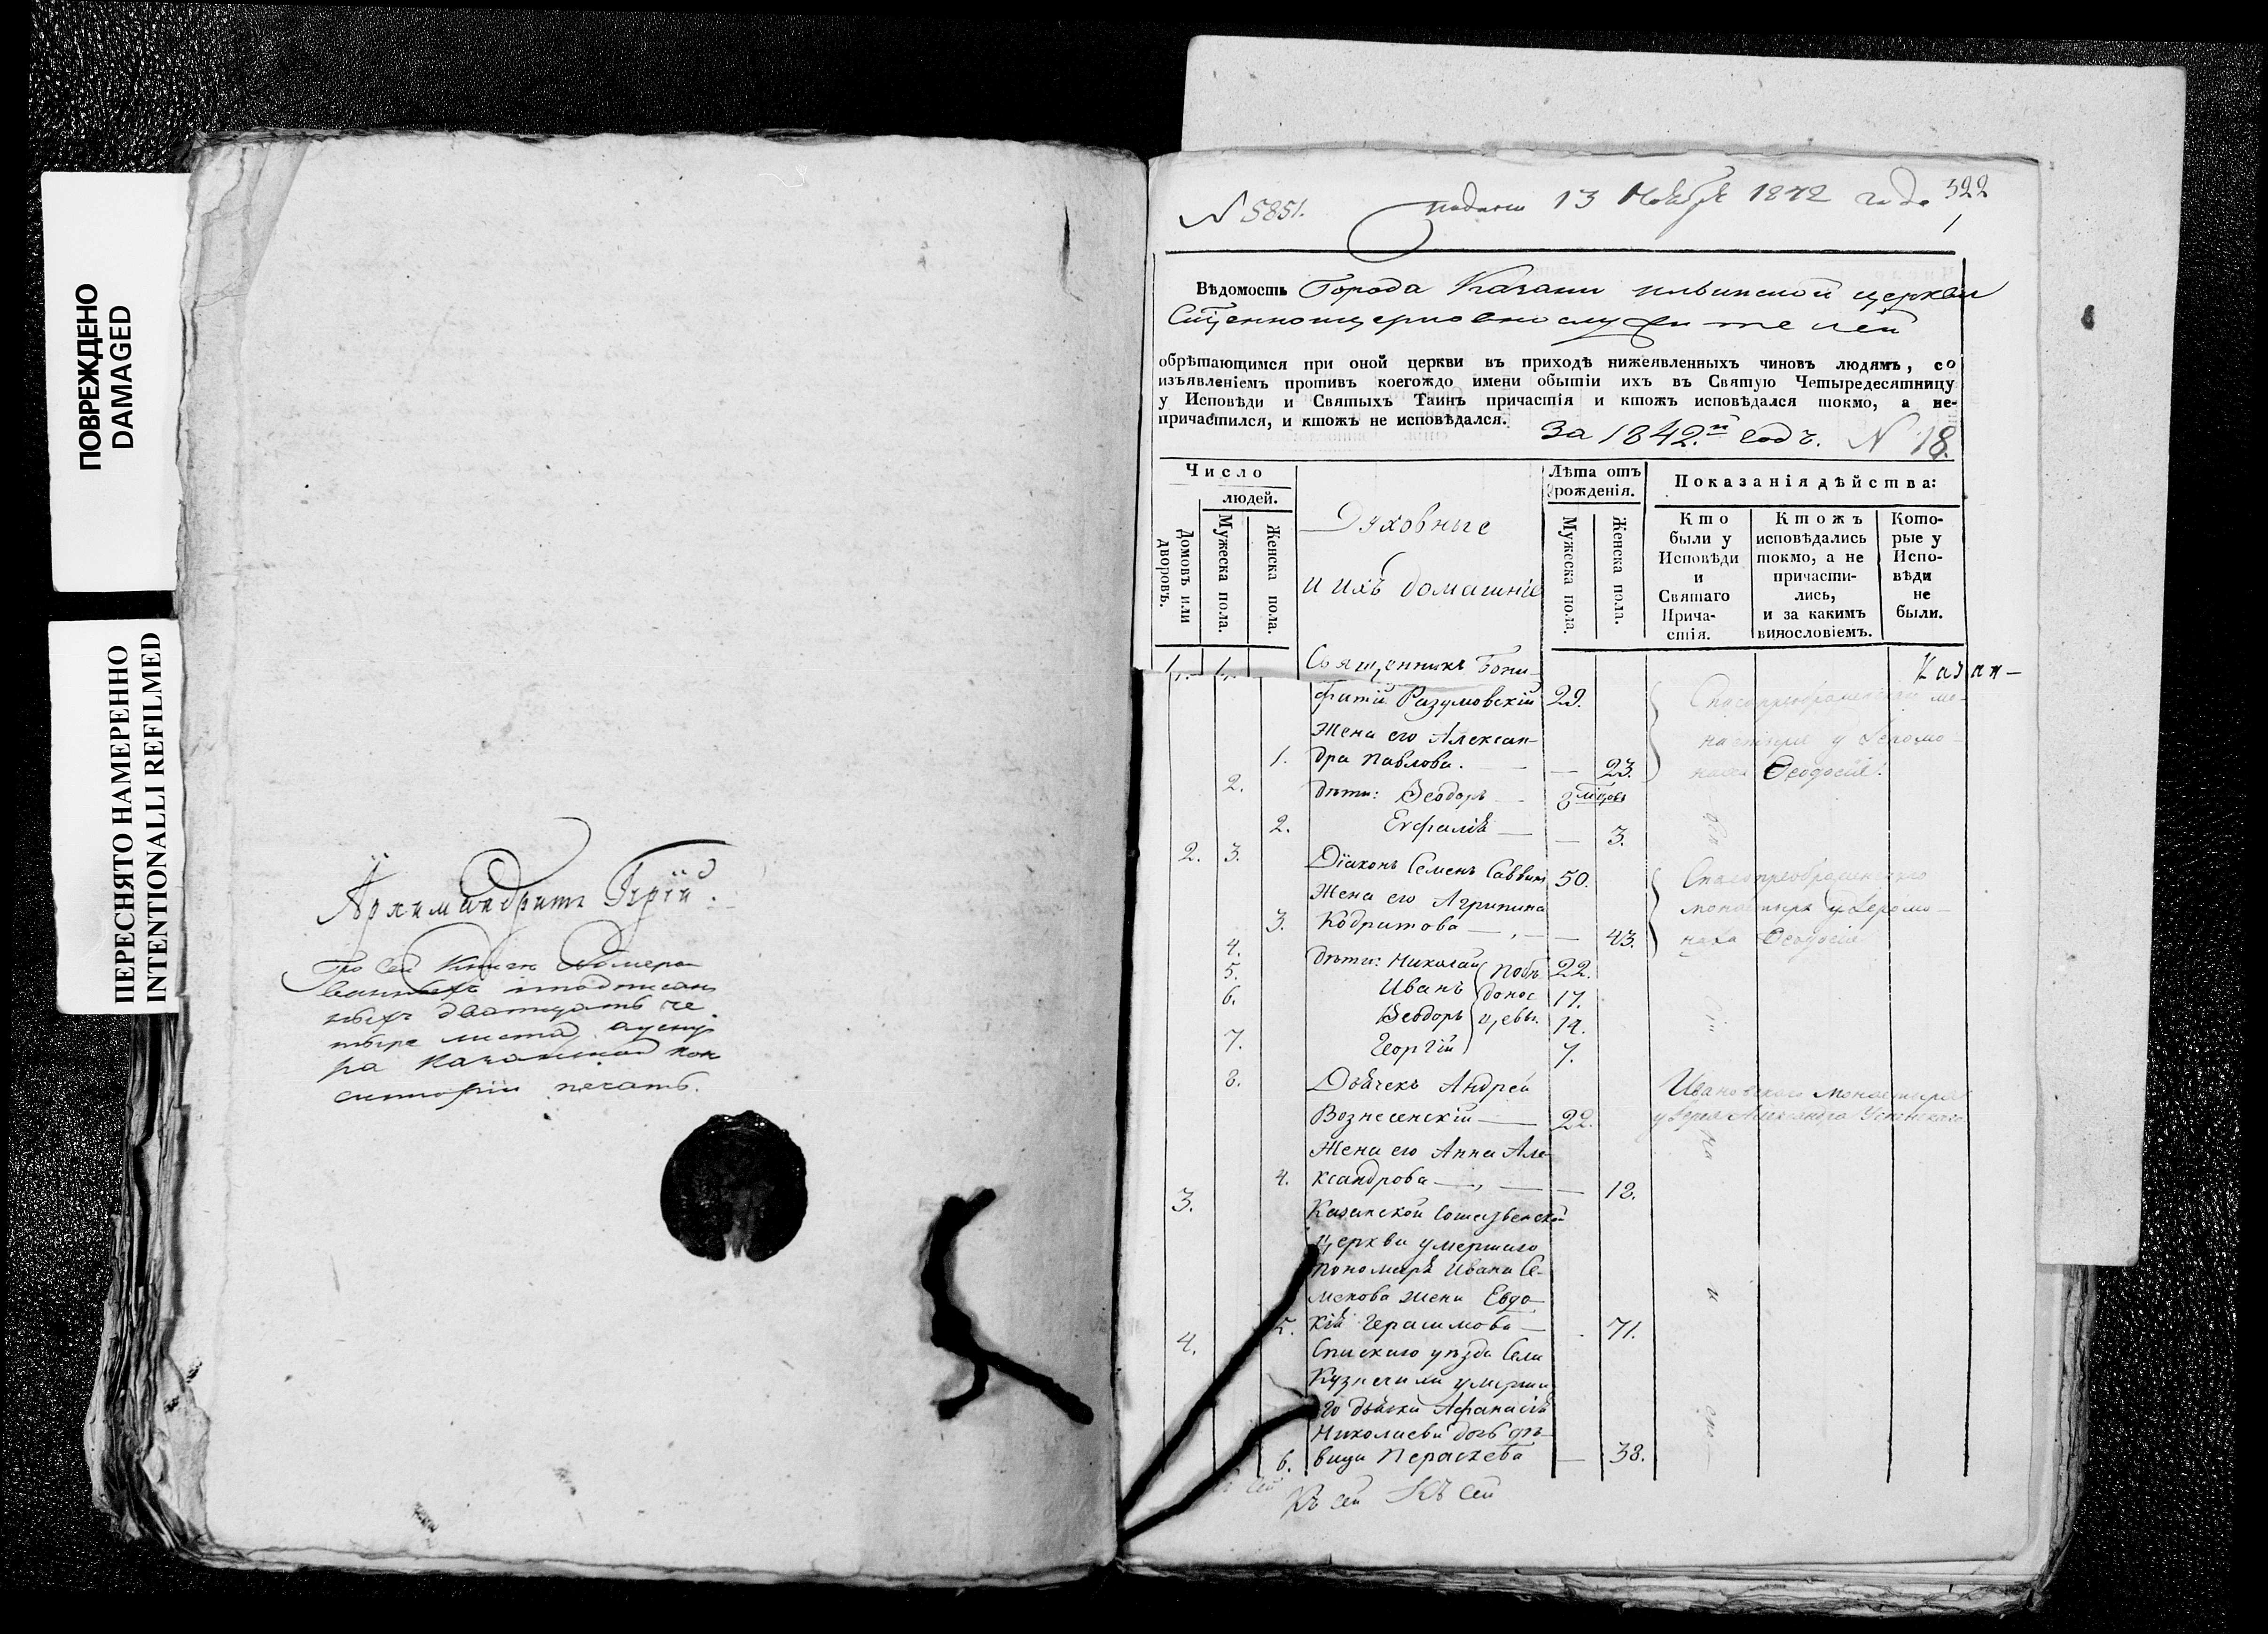 ПОВРЕЖДЕНО
DAMAGED
ПЕРЕСНЯТО НАМЕРЕННО
INTENTIONALLI REFILMED
Архимандритъ
По сей книге
двадцать че
тыре листа
ра Казанской кон
систоріи печать.
N 5851.
подано 13 Ноября 1842 года
322
1
Вѣдомость Города Казани ильинской церкви
Сщ҃енноцерковнослужителей
обрѣтающимся при оной церкви въ приходѣ нижеявленныхъ чиновъ людямъ, со
изъявленіемъ противъ коегождо имени обытіи ихъ въ Святую Четыредесятницу
у Исповѣди и Святыхъ Таинъ причастія и ктожъ исповѣдался токмо, а не-
причастился, и ктожъ не исповѣдался.
За 1842.й годъ. N 18.
Число
людей.
Домовъ или дворовъ.
Мужеска пола.
Женска пола.
Духовные
и ихъ домашніе
Лѣта отъ
рожденія.
Мужеска пола.
Женска пола.
Показанія дѣйства:
Кто
были у
Исповѣди
и
Святаго
Прича-
стія.
Ктожъ
исповѣдались
токмо, а не
причасти-
лись,
и за какимъ
винословіемъ.
Кото-
рые у
Испо-
вѣди
не
были.
1. 1. Священникъ Бони- Казан-
фатій Разумовскій 29. Спасопреображенскаго мо-
Жена его Алексан- настыря у Іеромо-
1. дра Павлова. — 23. наха Ѳеодосія.
2. Дѣти: Ѳеодоръ
2. Евфалія — 3.
2. 3. Діаконъ Семенъ Саввинъ 50. Спасопреображенскаго
Жена его Агрипина монастыря у Іеромо-
3. Кодратова — 43. наха Ѳеодосія
4. Дѣти: Николай Побѣ 22.
5. Иванъ донос 17.
6. Ѳеодоръ цевы. 14.
7. Георгій 7.
8. Дьячекъ Андрей Ивановскаго монастыря
Вознесенскій — 22. у Іерея Александра
Жена его Анна Але-
4. ксандрова — 18.
3. Казанской Сошественской
церкви умершаго
пономаря Ивана Се-
менова жена Евдо-
5. кія Герасимова — 71.
4. Спаскаго уѣзда Села
Кузнечихи умерша
го дьячка Афанасія
Николаева дочь дѣ-
6. вица Пераскева — 38.
Къ сей Къ сей